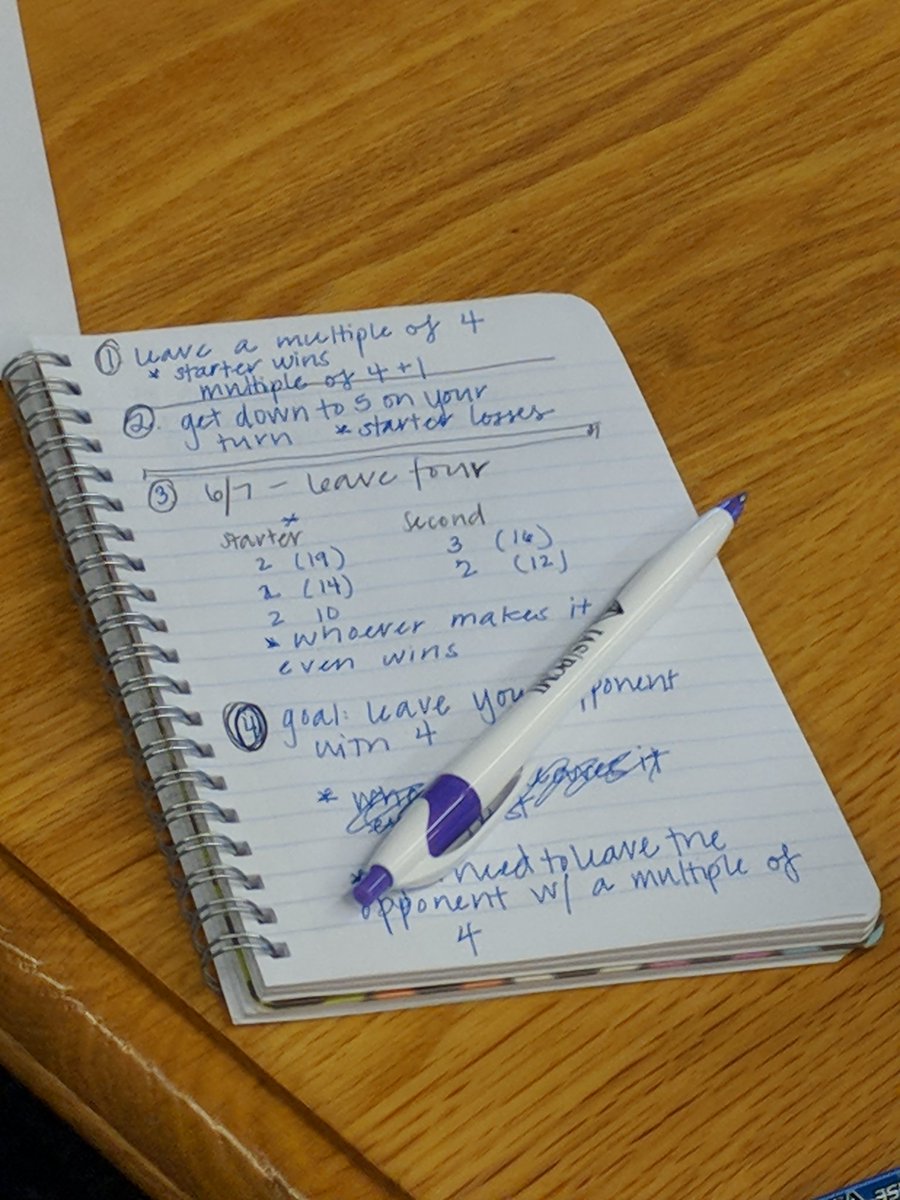 ① leave a multiple of 4
* starter wins
multiple of 4 + 1
②. get down to 5 on your
turn * starter losses
③ 6/7 - leave four
starter* second
2 (19) 3 (16)
2 (14) 2 (12)
2 10
* whoever makes it
even wins
④ goal: leave opponent
with 4
*
it
need to leave the
opponent w/ a multiple of
4